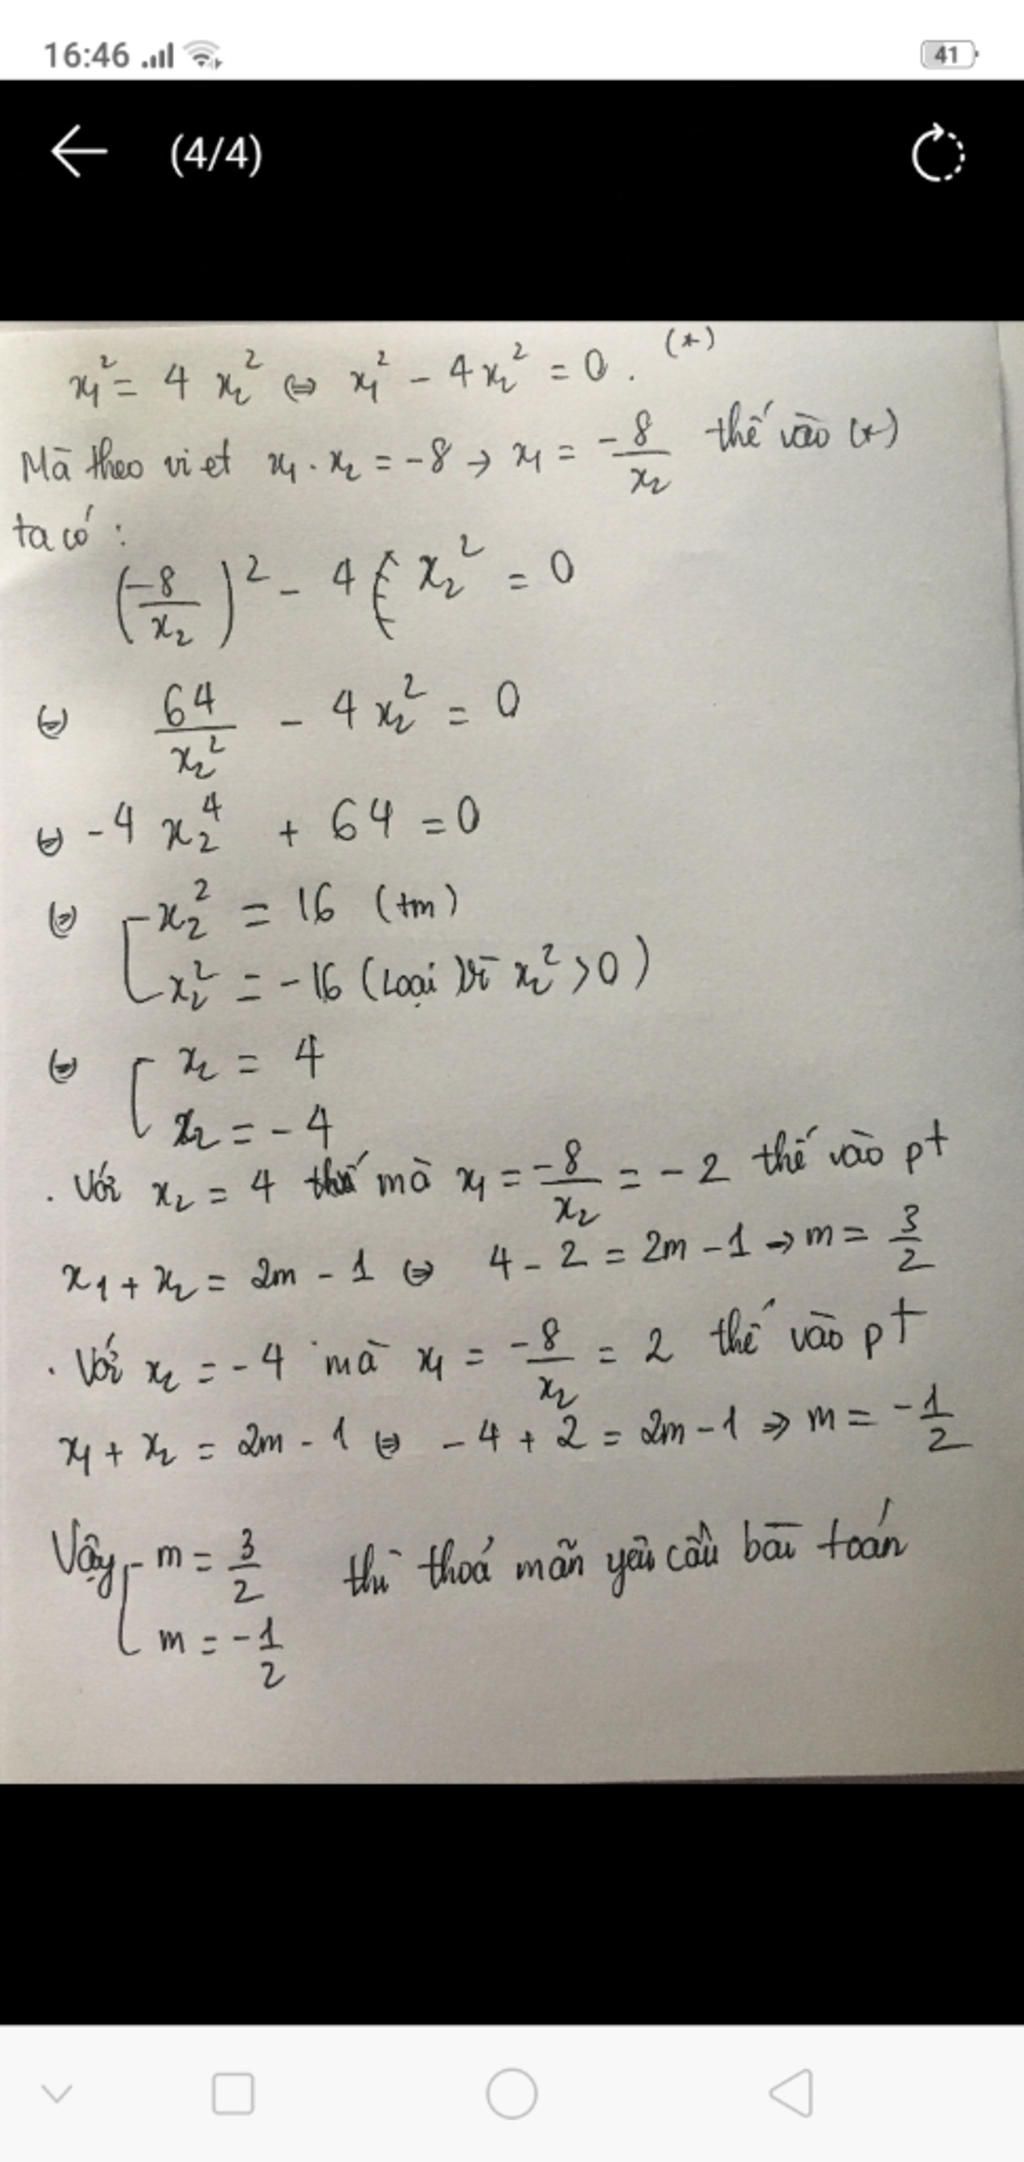 16:46
41
(4/4)
x₁² = 4 x₂² ⇔ x₁² - 4x₂² = 0. (*)
Mà theo viet x₁ . x₂ = -8 → x₁ = -8/x₂ thế vào (*)
ta có :
(-8/x₂)² - 4 ( x₂² = 0
⇔ 64/x₂² - 4x₂² = 0
⇔ -4 x₂⁴ + 64 = 0
⇔ [ x₂² = 16 (tm)
x₂² = -16 (Loại vì x₂² > 0)
⇔ [ x₂ = 4
x₂ = -4
. Với x₂ = 4 mà x₁ = -8/x₂ = -2 thế vào pt
x₁ + x₂ = 2m - 1 ⇔ 4 - 2 = 2m - 1 → m = 3/2
. Với x₂ = -4 mà x₁ = -8/x₂ = 2 thế vào pt
x₁ + x₂ = 2m - 1 ⇔ -4 + 2 = 2m - 1 → m = -1/2
Vậy [ m = 3/2 thì thoả mãn yêu cầu bài toán
m = -1/2